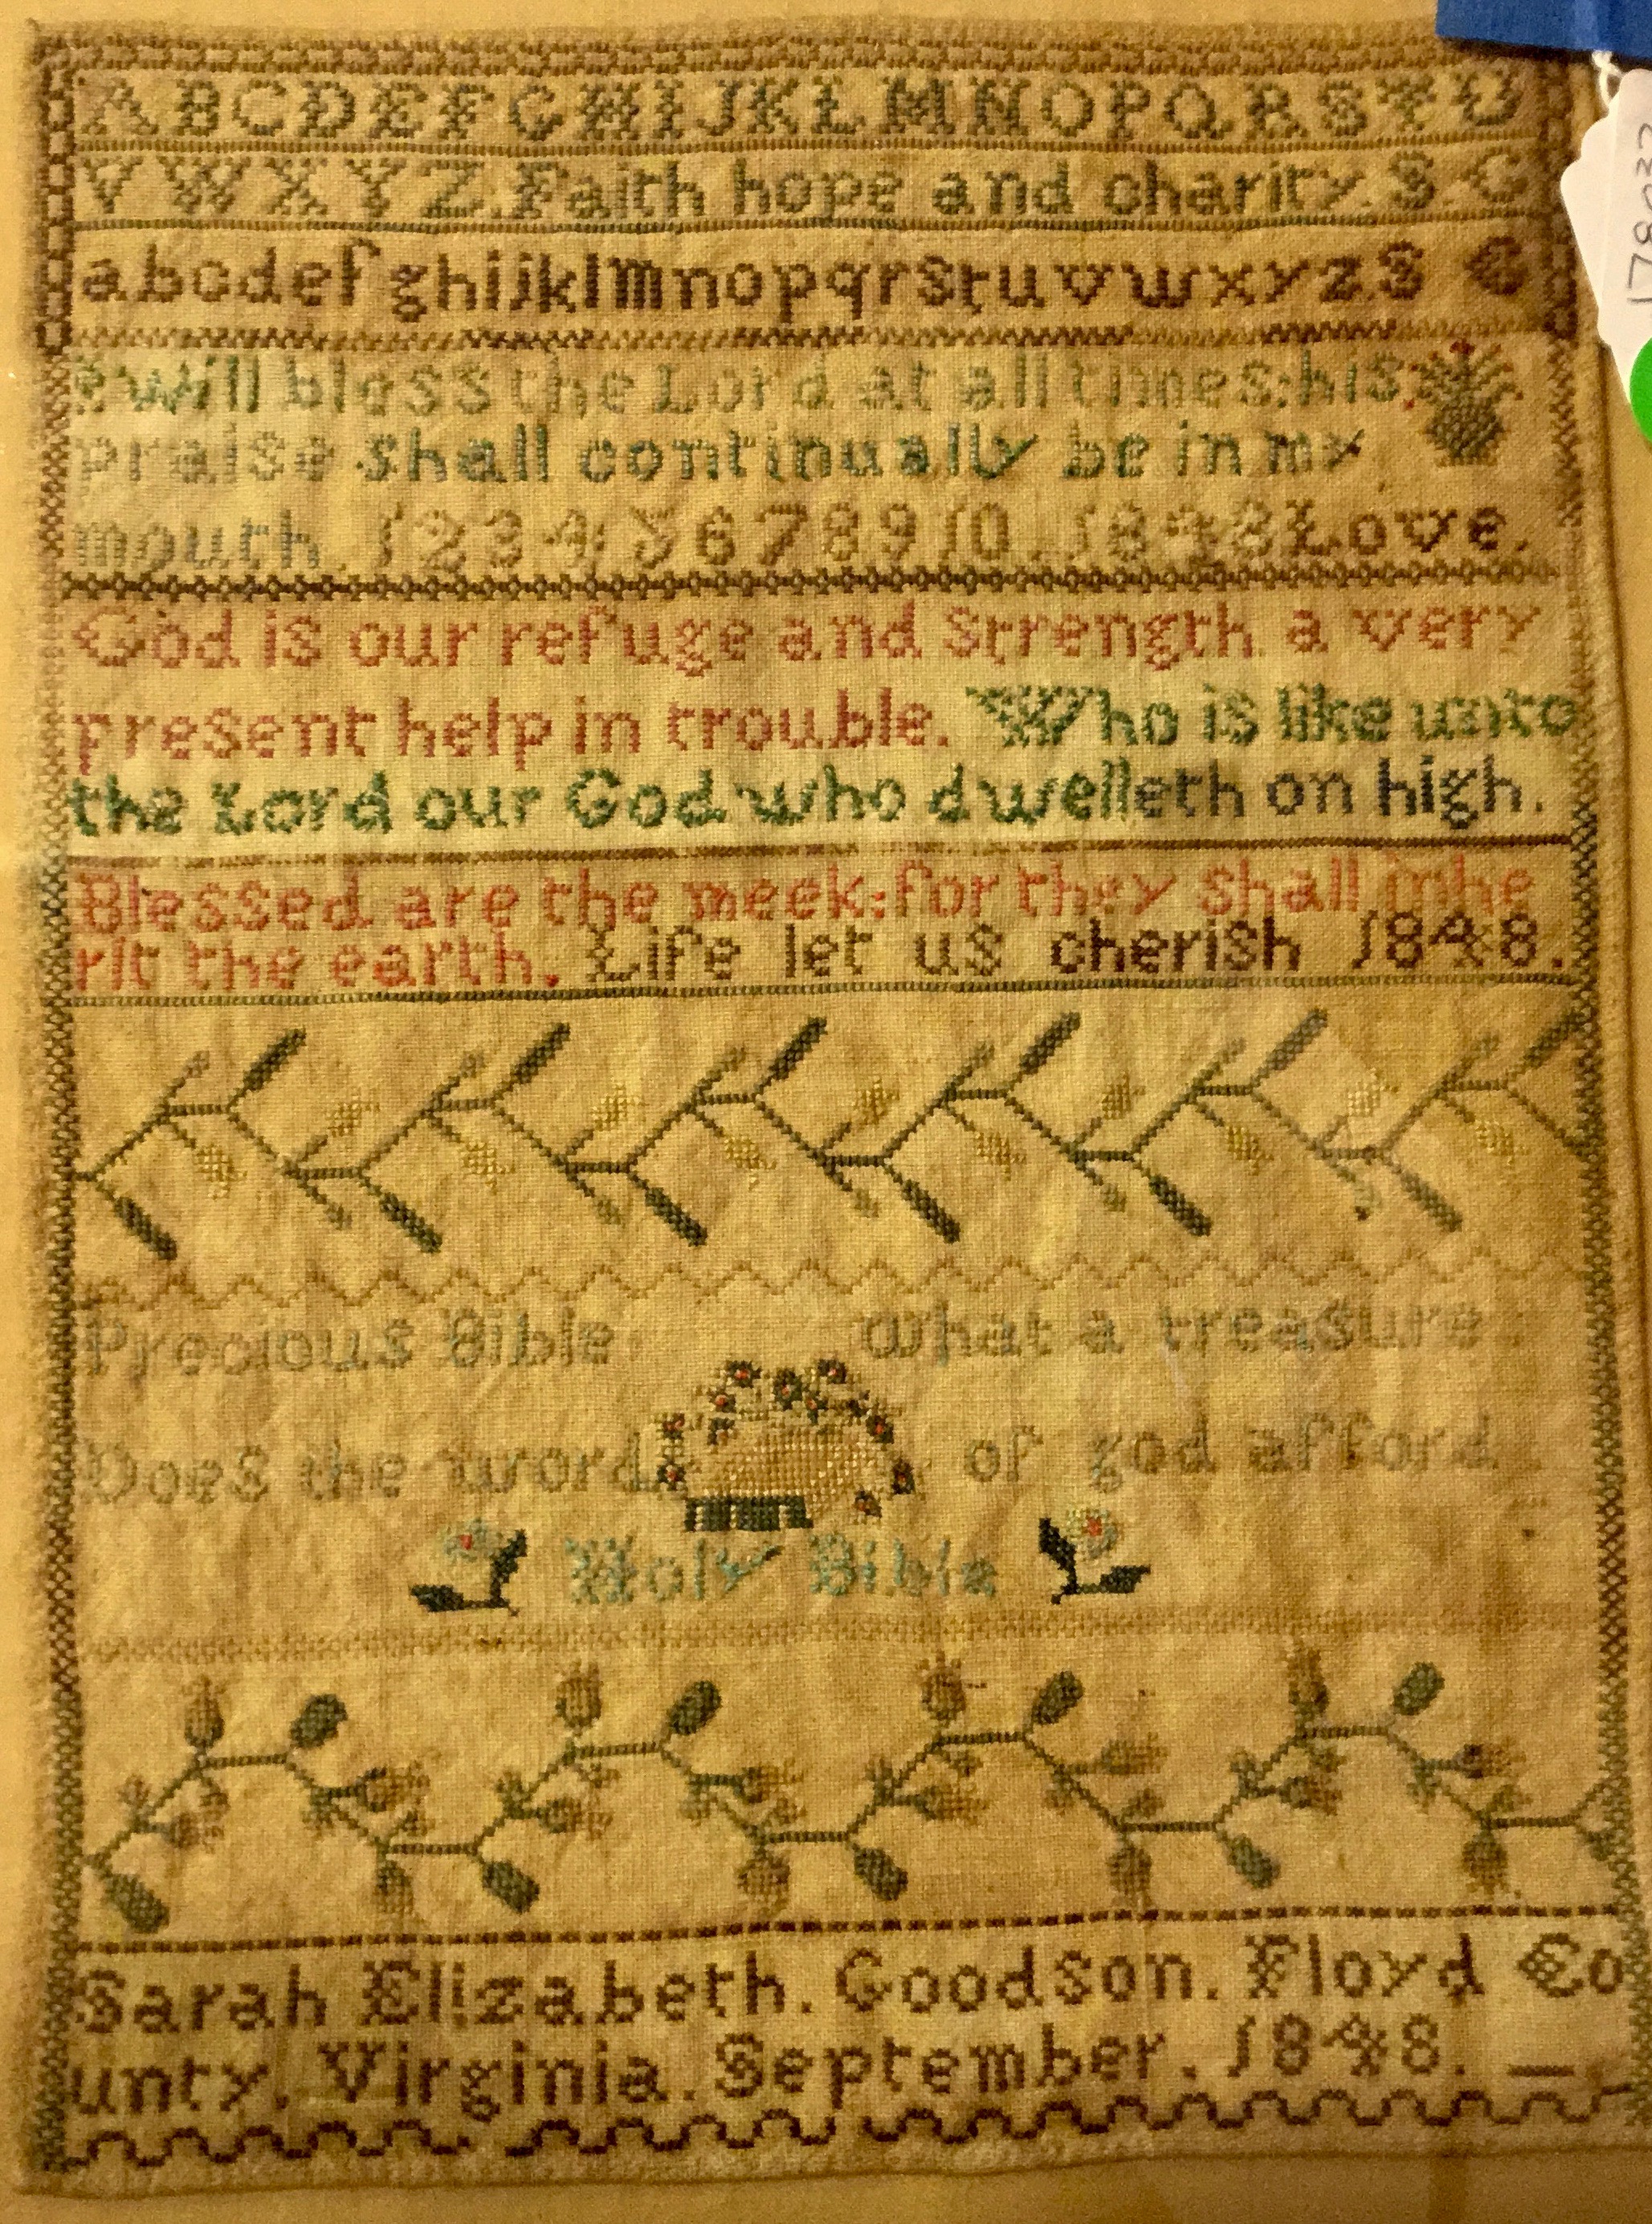 A B C D E F G H I J K L M N O P Q R S T U
V W X Y Z. Faith hope and charity. S. G
a b c d e f g h i j k l m n o p q r s t u v w x y z. S G
will bless the Lord at all times: his
praise shall continually be in my
mouth. 1 2 3 4 5 6 7 8 9 10. 1848 Love.
God is our refuge and strength a very
present help in trouble. Who is like unto
the Lord our God who dwelleth on high.
Blessed are the meek: for they shall inhe
rit the earth. Life let us cherish 1848.
Precious Bible what a treasure
Does the word of god afford
Holy Bible
Sarah Elizabeth. Goodson. Floyd Co
unty. Virginia. September. 1848.